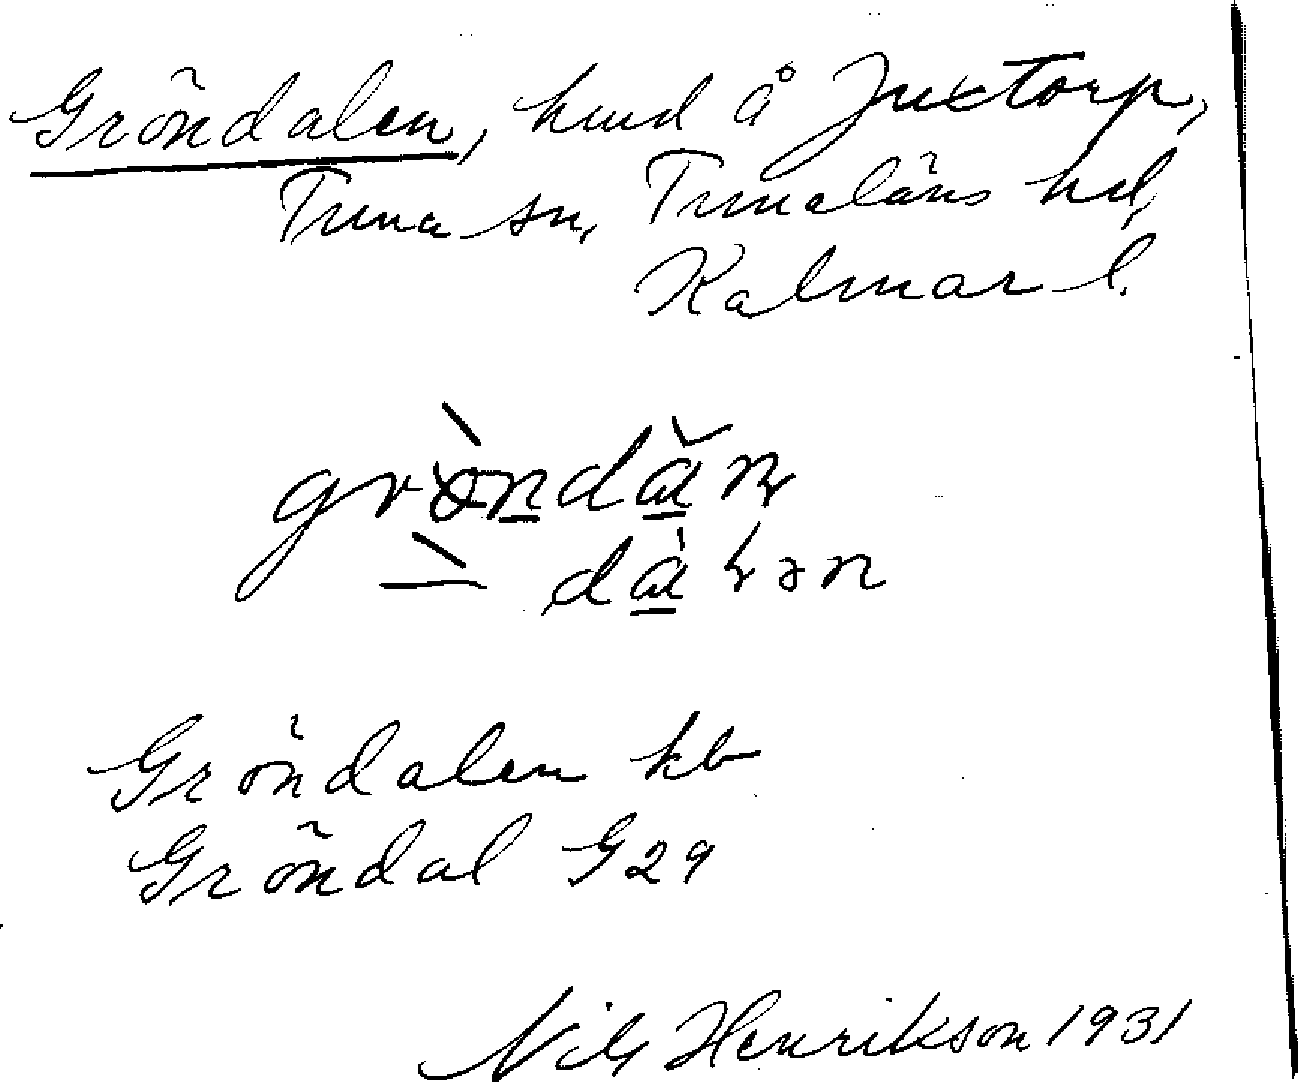 Gröndalen, hmd å Juxtorp,
Tuna sn, Tunaläns hd,
Kalmar l.
Gröndalen kb
Gröndal G29
Nils Henrikson 1931